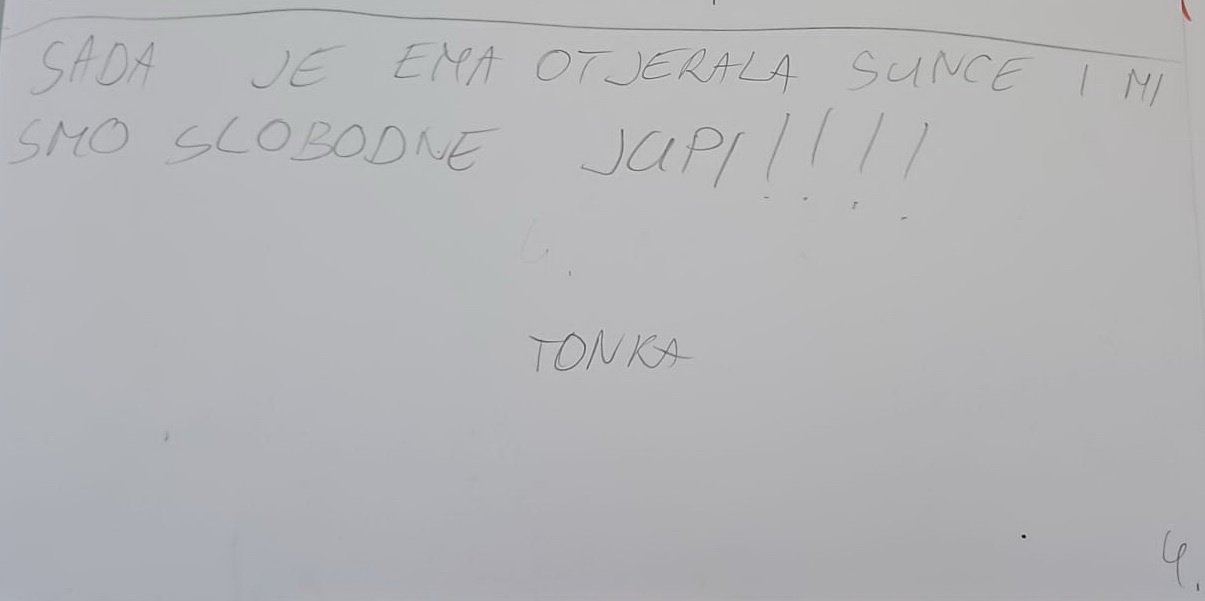 SADA JE EMA OTJERALA SUNCE I MI
SMO SLOBODNE JUPI!!!!
TONKA
4.